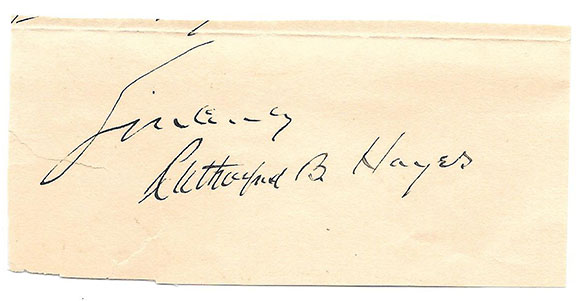 Sincerely
Rutherford B Hayes